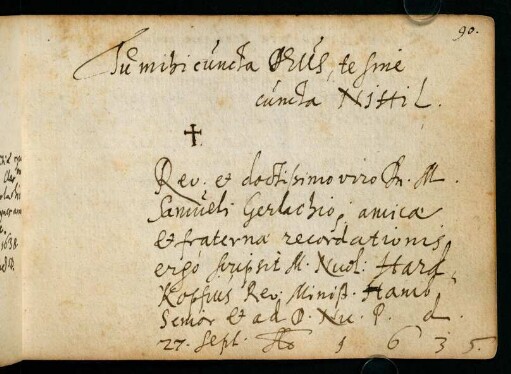 90.
Tu mihi cuncta DEUS, te sine
cuncta NIHIL.
Rev. et doctissimo viro Dn. M.
Samueli Gerlachio, amicæ
et fraternæ recordationis
ergo scripsit M. Nicol: Hard
Kopfius Rev. Minist. Hamb.
Senior et ad D. Nic. P. d.
27. Sept. Ao 1 6 3 5.
1638